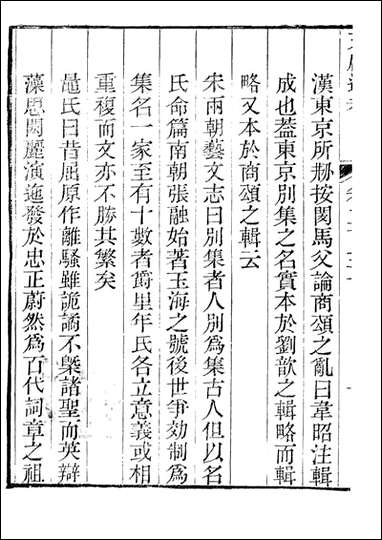 漢東京所刱按閔馬父論商頌之亂曰韋昭注輯
成也葢東京別集之名實本於劉歆之輯略而輯
略又本於商頌之輯云
宋兩朝藝文志曰別集者人別爲集古人但以名
氏命篇南朝張融始著玉海之號後世爭効制爲
集名一家至有十數者爵里年氏各立意義或相
重複而文亦不勝其繁矣
晁氏曰昔屈原作離騷雖詭譎不槩諸聖而英辯
藻思閎麗演迤發於忠正蔚然爲百代詞章之祖